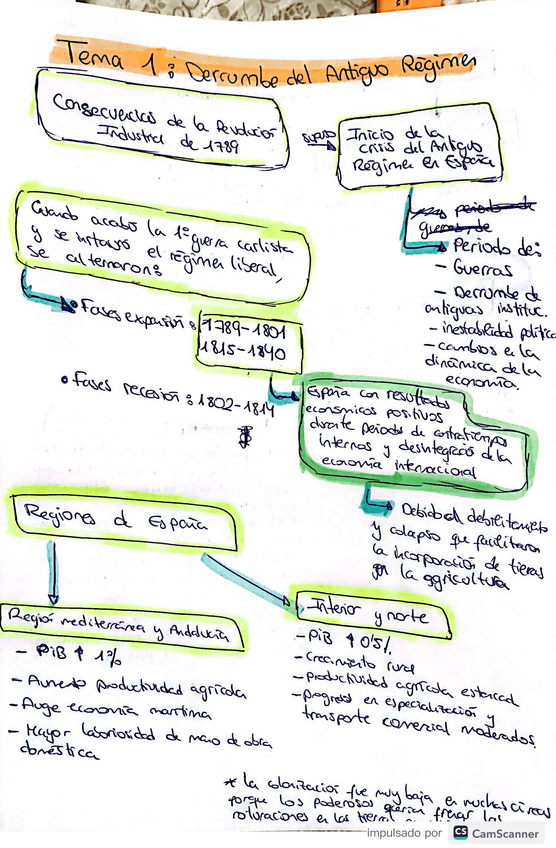 Tema 1: Derrumbe del Antiguo Régimen
Consecuencias de la Revolución
Industrial de 1789
supuso
Inicio de la
crisis del Antiguo
Régimen en España
periodo de
guerras de
Periodo de:
- Guerras
- Derrumbe de
antiguas instituc.
- inestabilidad política
- cambios en la
dinámica de la
economía.
Cuando acabó la 1º guerra carlista
y se instauró el régimen liberal,
se alternaron:
• Fases expansión:
1789-1801
1815-1840
• Fases recesión: 1802-1814
España con resultados
económicos positivos
durante periodo de contratiempos
internos y desintegración de la
economía internacional
Debido al debilitamiento
y colapso que facilitaron
la incorporación de tierras
en la agricultura
Regiones de España
Región mediterránea y Andalucía
- PiB ↑ 1%
- Aumento productividad agrícola
- Auge economía marítima
- Mayor laboriosidad de mano de obra
doméstica
Interior y norte
- PiB ↑ 0'5%
- Crecimiento rural
- Productividad agrícola estancad
- progreso en especialización y
transporte comercial moderados.
* la colonización fue muy baja en muchas áreas
porque los poderosos querían frenar las
roturaciones en las tierras
impulsado por CS CamScanner